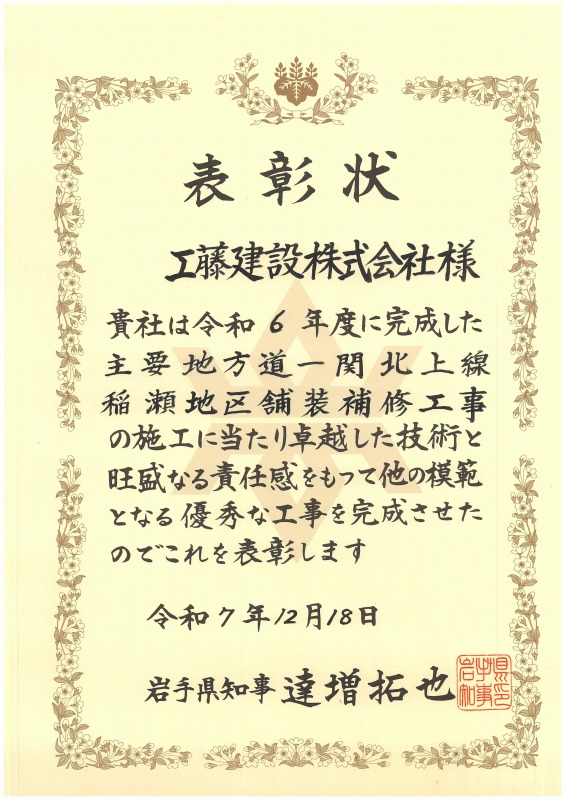 表彰状
工藤建設株式会社様
貴社は令和6年度に完成した
主要地方道一関北上線
稲瀬地区舗装補修工事
の施工に当たり卓越した技術と
旺盛なる責任感をもって他の模範
となる優秀な工事を完成させた
のでこれを表彰します
令和7年12月18日
岩手県知事 達増拓也
岩手県知事印